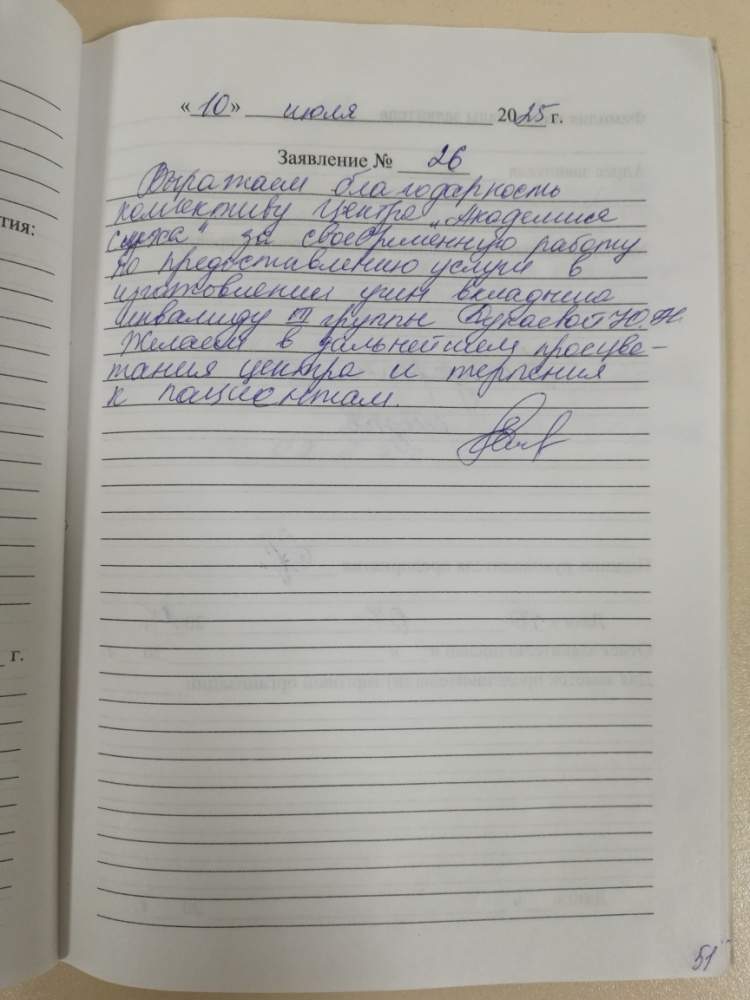 « 10 » июля 2025 г.
Заявление № 26
Выражаем благодарность
коллективу Центра „Академия
слуха" за своевременную работу
по предоставлению услуги в
изготовлении ушн вкладыша
инвалиду III группы Ю. Н.
Желаем в дальнейшем процве-
тания центра и терпения
к пациентам.
тия:
г.
51